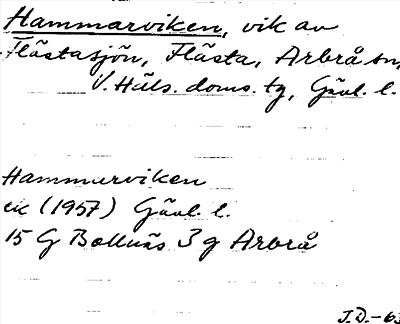 Hammarviken, vik av
Flästasjön, Flästa, Arbrå sn,
V. Häls. doms. tg, Gävl. l.
Hammarviken
ek (1957) Gävl. l.
15 G Bollnäs 3 g Arbrå
J.D.-63